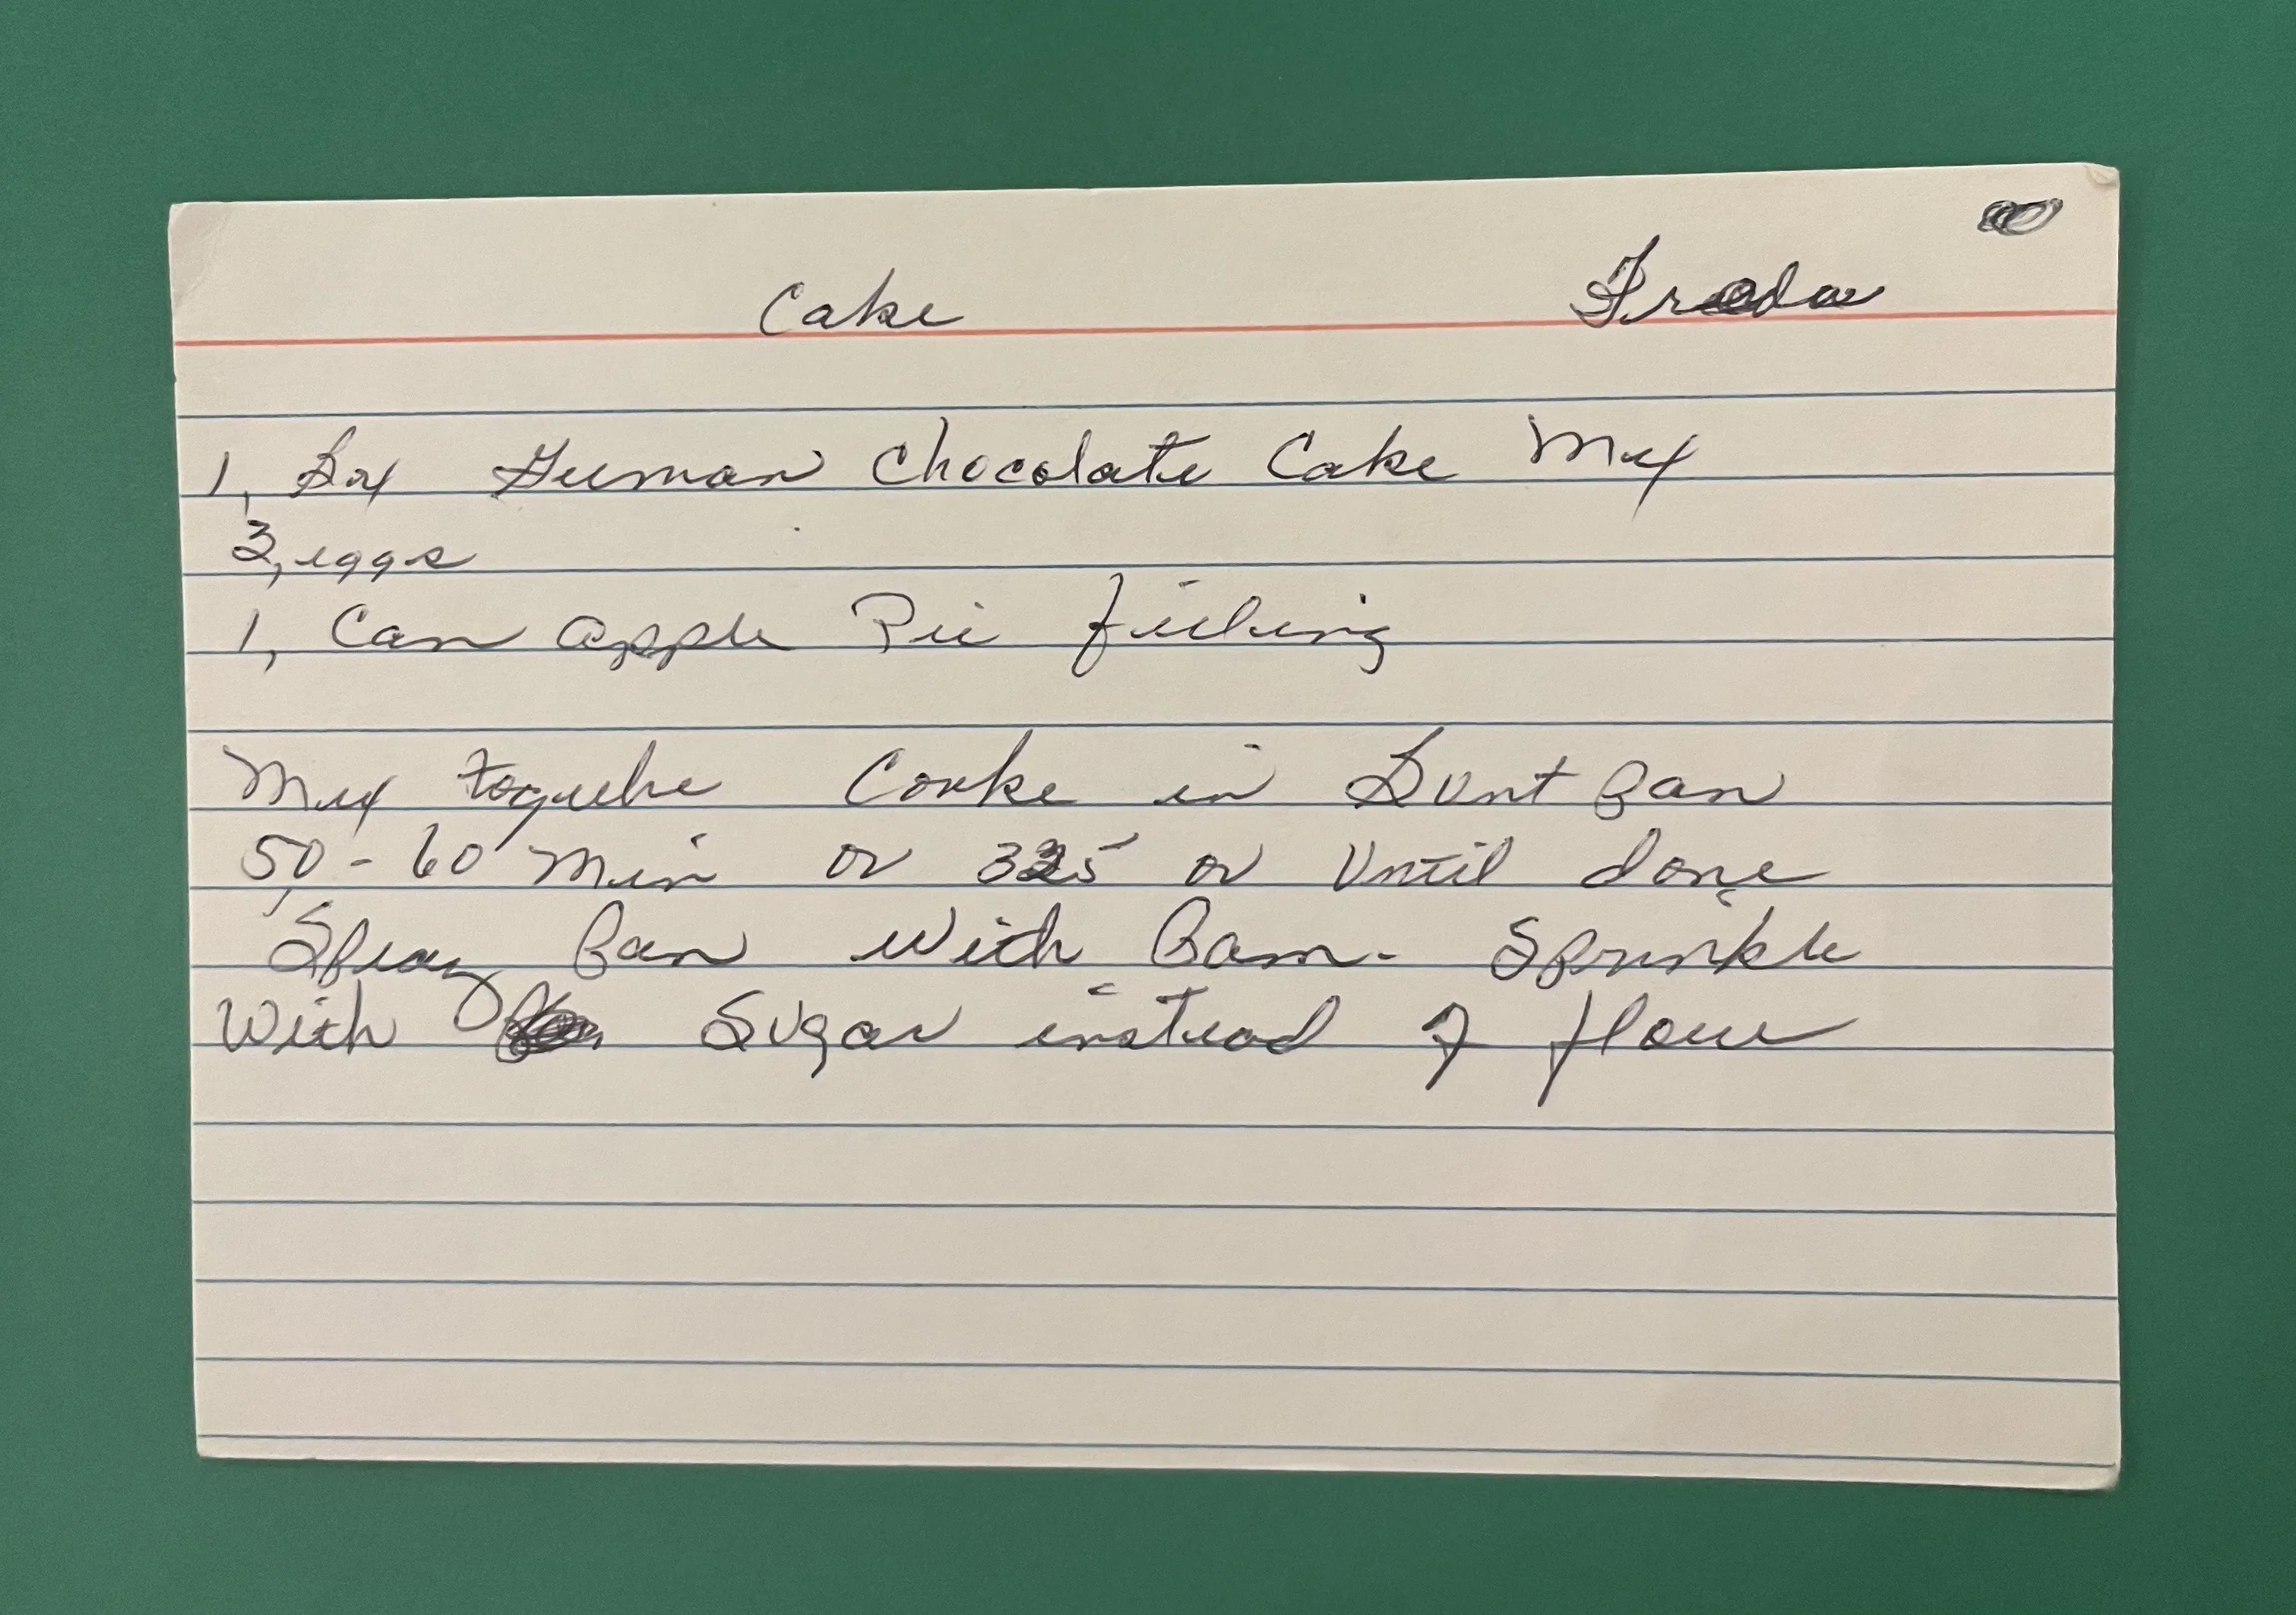 Cake Freda
1, Box German Chocolate Cake Mix
3, eggs
1, Can apple Pie filling
Mix togethe Cooke in Bunt Pan
50-60 Min or 325 or Until done
Spray Pan With Pam. Sprinkle
With Sugar instead of flour